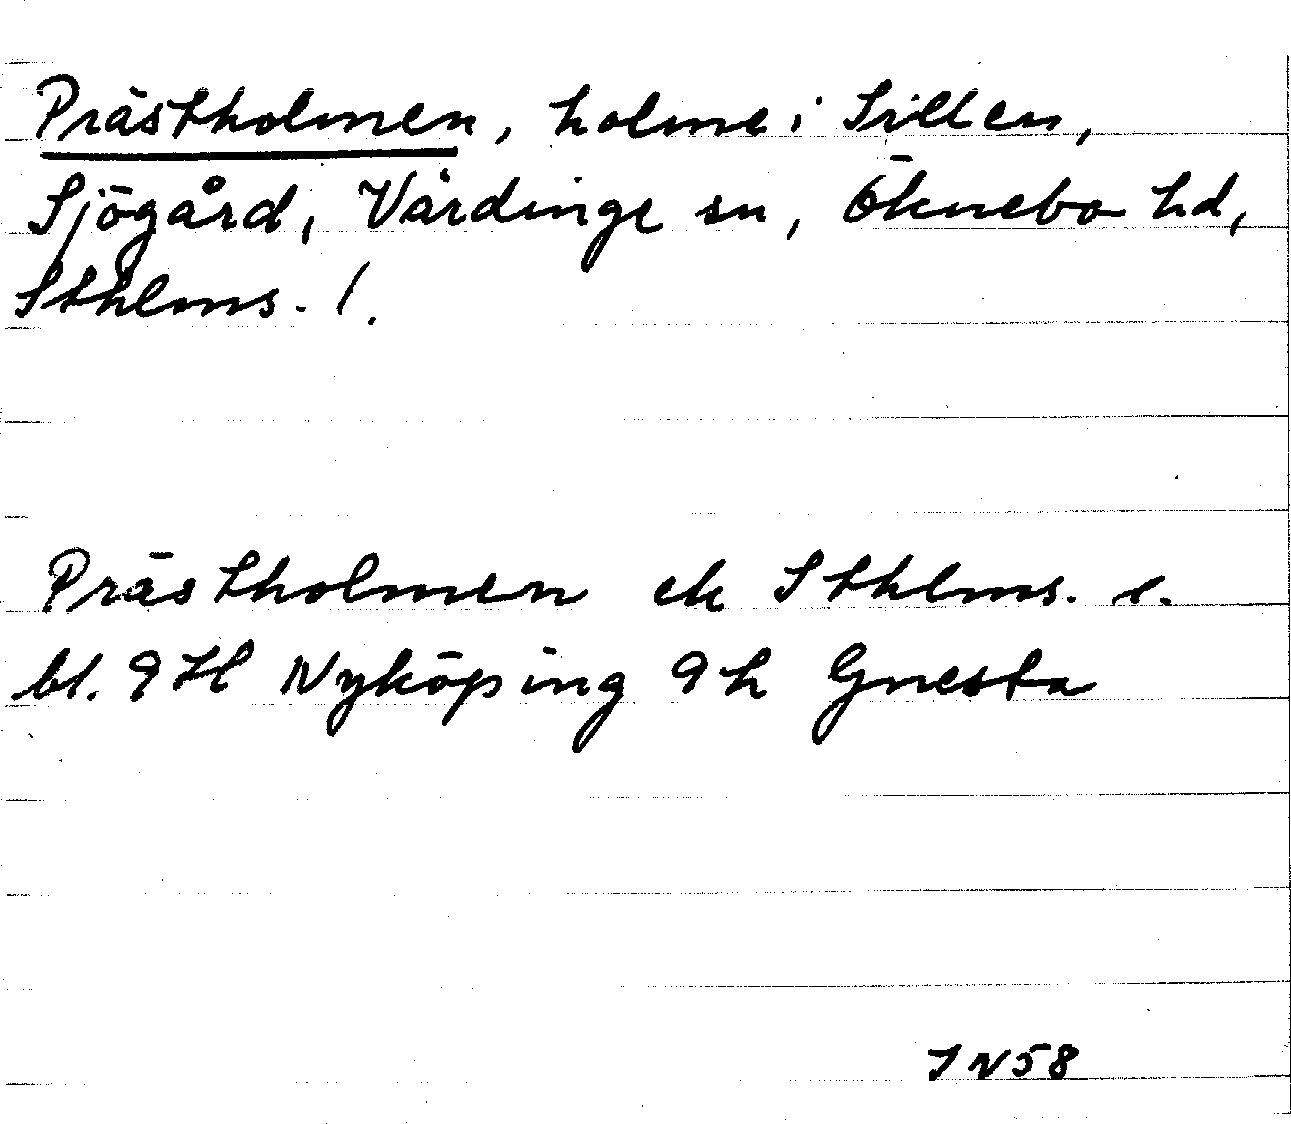 Prästholmen, holme i Sillen,
Sjögård, Vårdinge sn, Öknebo hd,
Sthlms. l.
Prästholmen ek Sthlms. l.
bl. 9H Nyköping 9h Gnesta
IN58